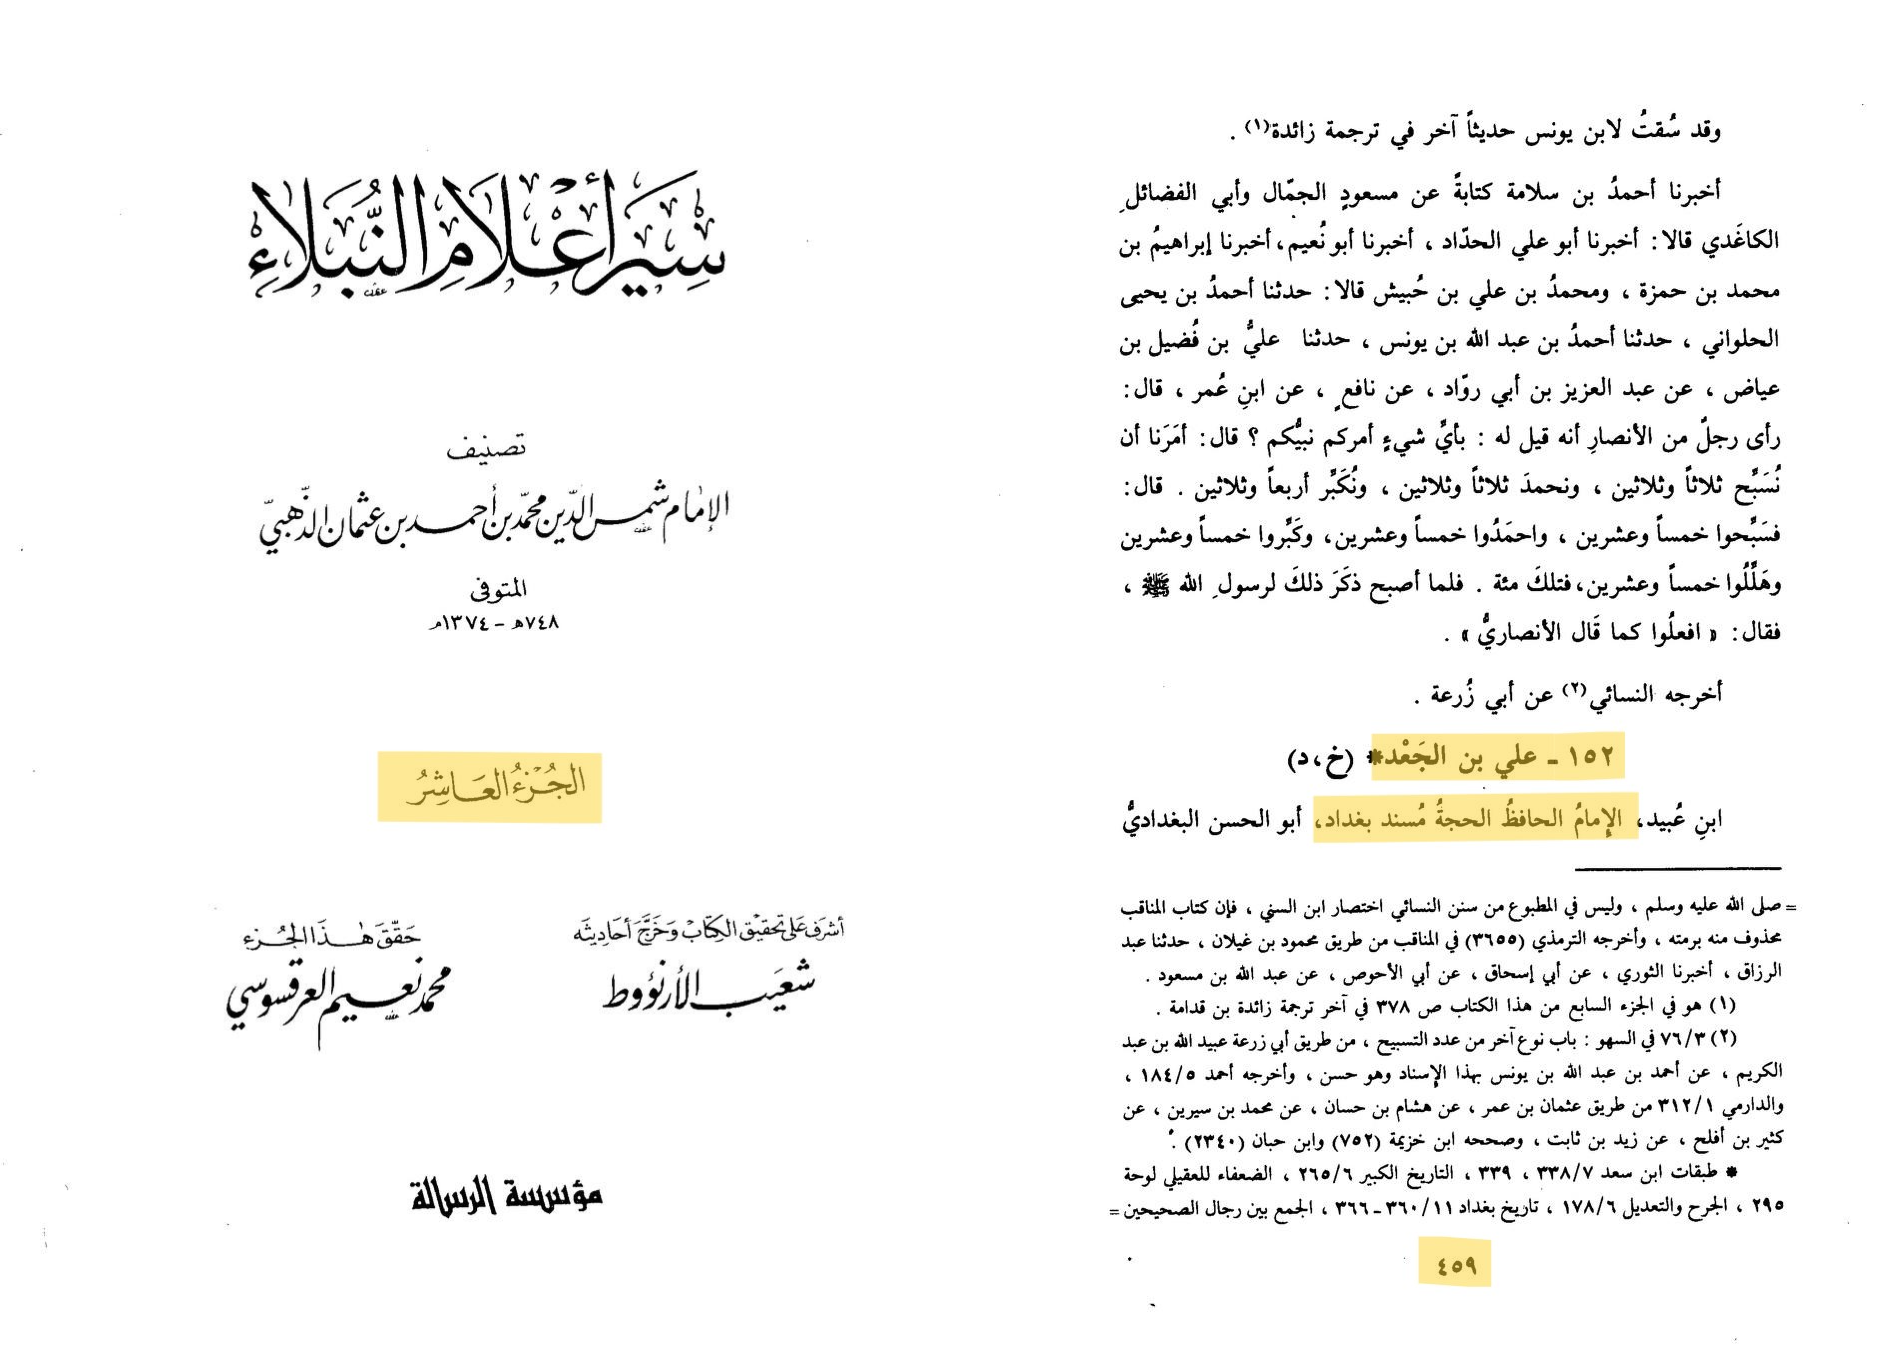 سِيَر أَعْلَامِ النُّبَلَاءِ
تصنيف
الإمام شمس الدّين محمّد بن أحمد بن عثمان الذّهبيّ
المتوفى
٧٤٨هـ - ١٣٧٤م
الجُزْءُ العَاشِرُ
أشرف على تحقيق الكتاب وَخَرَّجَ أحَاديثَه
شعَيب الأرنؤوط
حَقّقَ هٰذَا الجُزء
محمد نعيم العرقسوسي
مؤسسة الرسالة
وقد سُقتُ لابن يونس حديثاً آخر في ترجمة زائدة(١) .
أخبرنا أحمدُ بن سلامة كتابةً عن مسعودٍ الجمّال وأبي الفضائلِ
الكاغَدي قالا: أخبرنا أبو علي الحدّاد ، أخبرنا أبو نُعيم، أخبرنا إبراهيمُ بن
محمد بن حمزة ، ومحمدُ بن علي بن حُبيش قالا: حدثنا أحمدُ بن يحيى
الحلواني ، حدثنا أحمدُ بن عبد الله بن يونس ، حدثنا عليُّ بن فُضيل بن
عياض ، عن عبد العزيز بن أبي روّاد ، عن نافعٍ ، عن ابنِ عُمر ، قال:
رأى رجلٌ من الأنصارِ أنه قيل له : بأيِّ شيءٍ أمركم نبيُّكم ؟ قال: أمَرَنا أن
نُسَبِّح ثلاثاً وثلاثين ، ونحمدَ ثلاثاً وثلاثين ، ونُكَبِّر أربعاً وثلاثين . قال:
فسَبِّحوا خمساً وعشرين ، واحمَدُوا خمساً وعشرين، وكَبِّروا خمساً وعشرين
وهَلِّلُوا خمساً وعشرين، فتلكَ مئة . فلما أصبح ذكَرَ ذلكَ لرسولِ الله ﷺ ،
فقال: « افعلُوا كما قَال الأنصاريُّ » .
أخرجه النسائي(٢) عن أبي زُرعة .
١٥٢ - علي بن الجَعْد* (خ، د)
ابنِ عُبيد، الإمامُ الحافظُ الحجةُ مُسند بغداد، أبو الحسن البغداديُّ
= صلى الله عليه وسلم ، وليس في المطبوع من سنن النسائي اختصار ابن السني ، فإن كتاب المناقب
محذوف منه برمته ، وأخرجه الترمذي (٣٦٥٥) في المناقب من طريق محمود بن غيلان ، حدثنا عبد
الرزاق ، أخبرنا الثوري ، عن أبي إسحاق ، عن أبي الأحوص ، عن عبد الله بن مسعود .
(١) هو في الجزء السابع من هذا الكتاب ص ٣٧٨ في آخر ترجمة زائدة بن قدامة .
(٢) ٧٦/٣ في السهو : باب نوع آخر من عدد التسبيح ، من طريق أبي زرعة عبيد الله بن عبد
الكريم ، عن أحمد بن عبد الله بن يونس بهذا الإسناد وهو حسن ، وأخرجه أحمد ١٨٤/٥ ،
والدارمي ٣١٢/١ من طريق عثمان بن عمر ، عن هشام بن حسان ، عن محمد بن سيرين ، عن
كثير بن أفلح ، عن زيد بن ثابت ، وصححه ابن خزيمة (٧٥٢) وابن حبان (٢٣٤٠) .
* طبقات ابن سعد ٣٣٨/٧ ، ٣٣٩ ، التاريخ الكبير ٢٦٥/٦ ، الضعفاء للعقيلي لوحة
٢٩٥ ، الجرح والتعديل ١٧٨/٦ ، تاريخ بغداد ٣٦٠/١١ - ٣٦٦ ، الجمع بين رجال الصحيحين =
٤٥٩